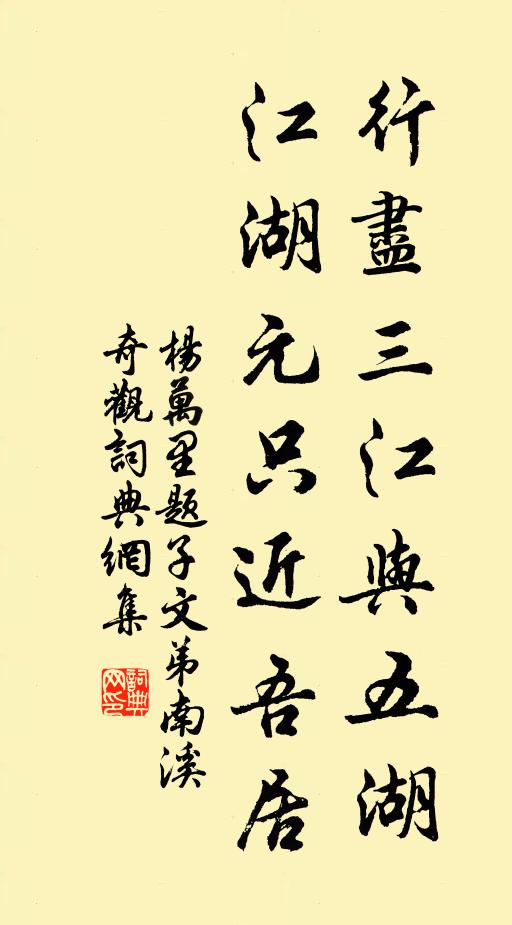 行盡三江與五湖
江湖元只近吾居
楊萬里題子文弟南溪
奇觀詞典網集
詞典
网印